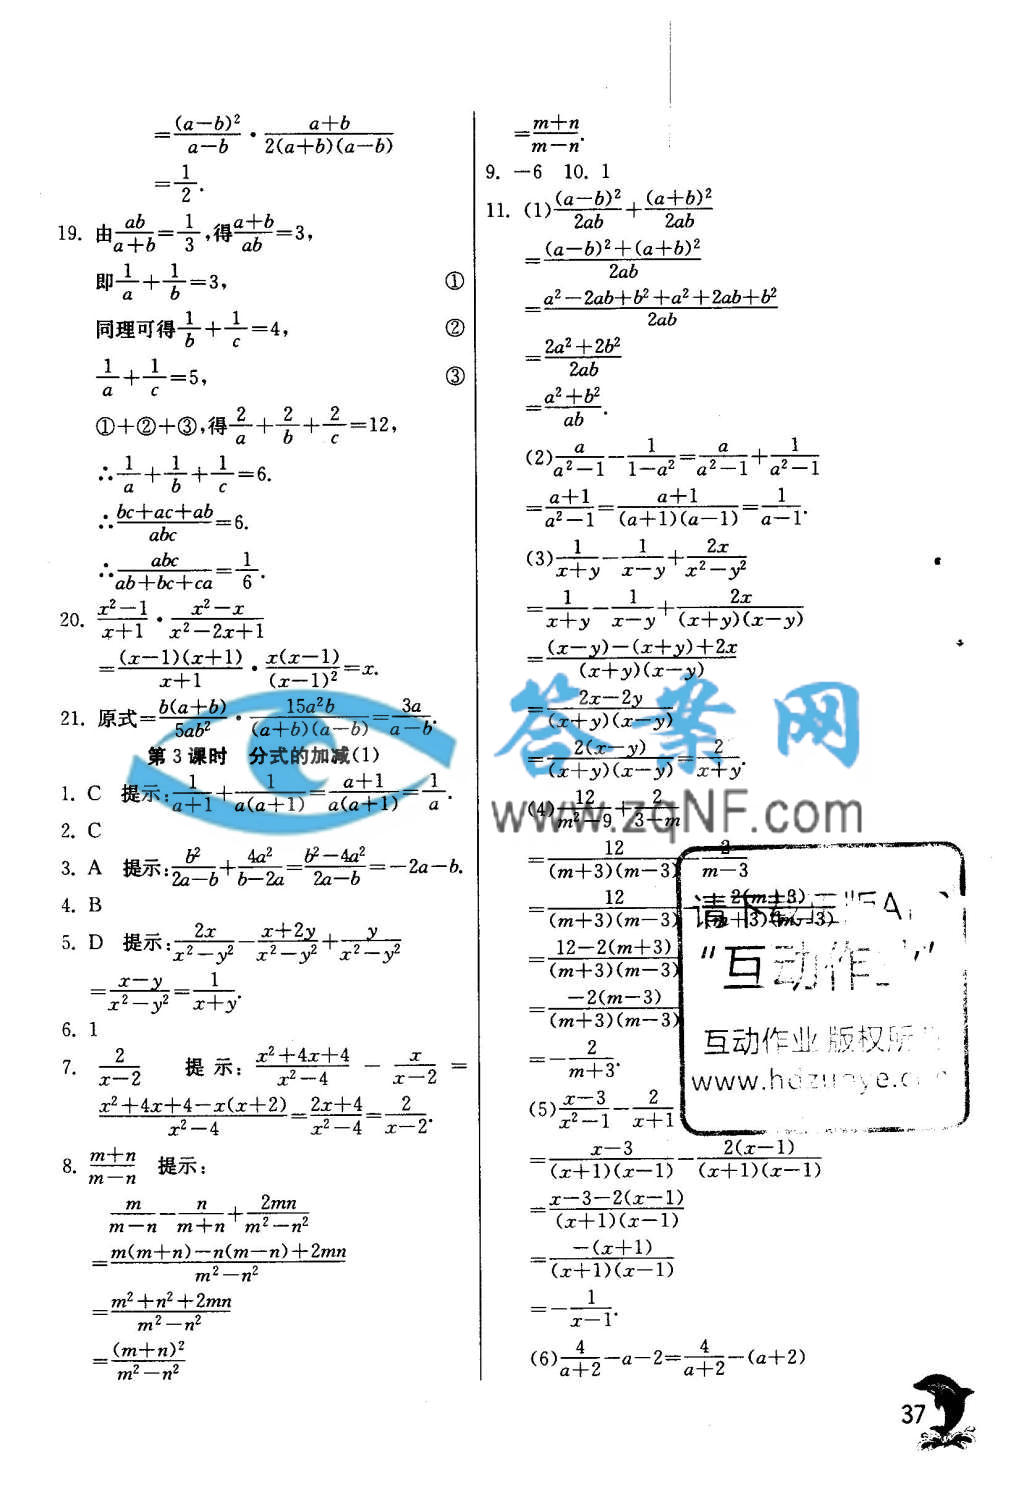 =(a-b)²/(a-b)·(a+b)/(2(a+b)(a-b))
=1/2.
19. 由ab/(a+b)=1/3,得(a+b)/ab=3,
即1/a+1/b=3, ①
同理可得1/b+1/c=4, ②
1/a+1/c=5, ③
①+②+③,得2/a+2/b+2/c=12,
∴1/a+1/b+1/c=6.
∴(bc+ac+ab)/abc=6.
∴abc/(ab+bc+ca)=1/6.
20. (x²-1)/(x+1)·(x²-x)/(x²-2x+1)
=(x-1)(x+1)/(x+1)·x(x-1)/(x-1)²=x.
21. 原式=b(a+b)/5ab²·15a²b/((a+b)(a-b))=3a/(a-b).
第3课时 分式的加减(1)
1. C 提示:1/(a+1)+1/(a(a+1))=(a+1)/(a(a+1))=1/a.
2. C
3. A 提示:b²/(2a-b)+4a²/(b-2a)=(b²-4a²)/(2a-b)=-2a-b.
4. B
5. D 提示:2x/(x²-y²)-(x+2y)/(x²-y²)+y/(x²-y²)
=(x-y)/(x²-y²)=1/(x+y).
6. 1
7. 2/(x-2) 提示:(x²+4x+4)/(x²-4)-x/(x-2)=
(x²+4x+4-x(x+2))/(x²-4)=(2x+4)/(x²-4)=2/(x-2).
8. (m+n)/(m-n) 提示:
m/(m-n)-n/(m+n)+2mn/(m²-n²)
=(m(m+n)-n(m-n)+2mn)/(m²-n²)
=(m²+n²+2mn)/(m²-n²)
=(m+n)²/(m²-n²)
=(m+n)/(m-n).
9. -6 10. 1
11. (1)(a-b)²/2ab+(a+b)²/2ab
=((a-b)²+(a+b)²)/2ab
=(a²-2ab+b²+a²+2ab+b²)/2ab
=(2a²+2b²)/2ab
=(a²+b²)/ab.
(2)a/(a²-1)-1/(1-a²)=a/(a²-1)+1/(a²-1)
=(a+1)/(a²-1)=(a+1)/((a+1)(a-1))=1/(a-1).
(3)1/(x+y)-1/(x-y)+2x/(x²-y²)
=1/(x+y)-1/(x-y)+2x/((x+y)(x-y))
=((x-y)-(x+y)+2x)/((x+y)(x-y))
=(2x-2y)/((x+y)(x-y))
=2(x-y)/((x+y)(x-y))=2/(x+y).
(4)12/(m²-9)+2/(3-m)
=12/((m+3)(m-3))-2/(m-3)
=12/((m+3)(m-3))-2(m+3)/((m+3)(m-3))
=(12-2(m+3))/((m+3)(m-3))
=-2(m-3)/((m+3)(m-3))
=-2/(m+3).
(5)(x-3)/(x²-1)-2/(x+1)
=(x-3)/((x+1)(x-1))-2(x-1)/((x+1)(x-1))
=(x-3-2(x-1))/((x+1)(x-1))
=-(x+1)/((x+1)(x-1))
=-1/(x-1).
(6)4/(a+2)-a-2=4/(a+2)-(a+2)
答案网
www.zqNF.com
互动作业 版权所
37